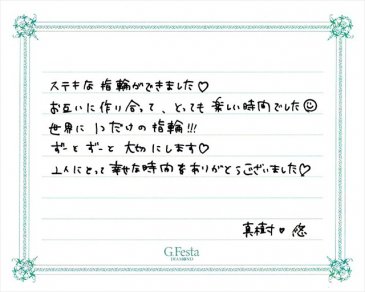 ステキな指輪ができました♡
お互いに作り合って、とっても楽しい時間でした☺
世界に1つだけの指輪!!!
ずーとずーと大切にします♡
2人にとって幸せな時間をありがとうございました♡
真樹♡悠
G.Festa
DIAMOND